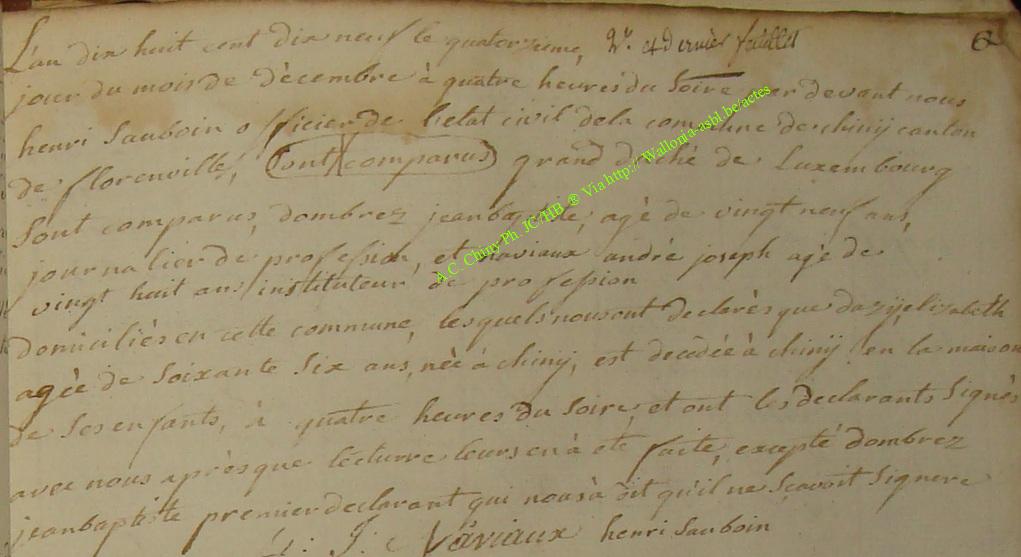 L'an dix huit cent dix neuf le quatorzieme 2e. et dernier feuillet 6
jour du mois de décembre à quatre heures du Soire par devant nous
henri Sauboin officier de l'etat civil de la commune de chinij canton
de florenville, (sont comparus) grand duché de Luxembourg
Sont comparus, dombrez jeanbaptiste, agé de vingt neuf ans,
journalier de profession, et Naviaux andré joseph agé de
vingt huit ans instituteur de profession
domiciliés en cette commune, lesquels nous ont declarès que dazij elizabeth
agée de Soixante Six ans, née à chinij, est decédée à chinij en la maison
de Ses enfants, à quatre heures du Soire, et ont les declarants Signés
avec nous après que lecturre leurs en à eté faite, excepté dombrez
jeanbaptiste premier declarant qui nous à dit qu'il ne Scavoit Signere
J. Naviaux henri Sauboin
A.C. Chiny Ph. JC/HB ® Via http://Wallonia-asbl.be/actes